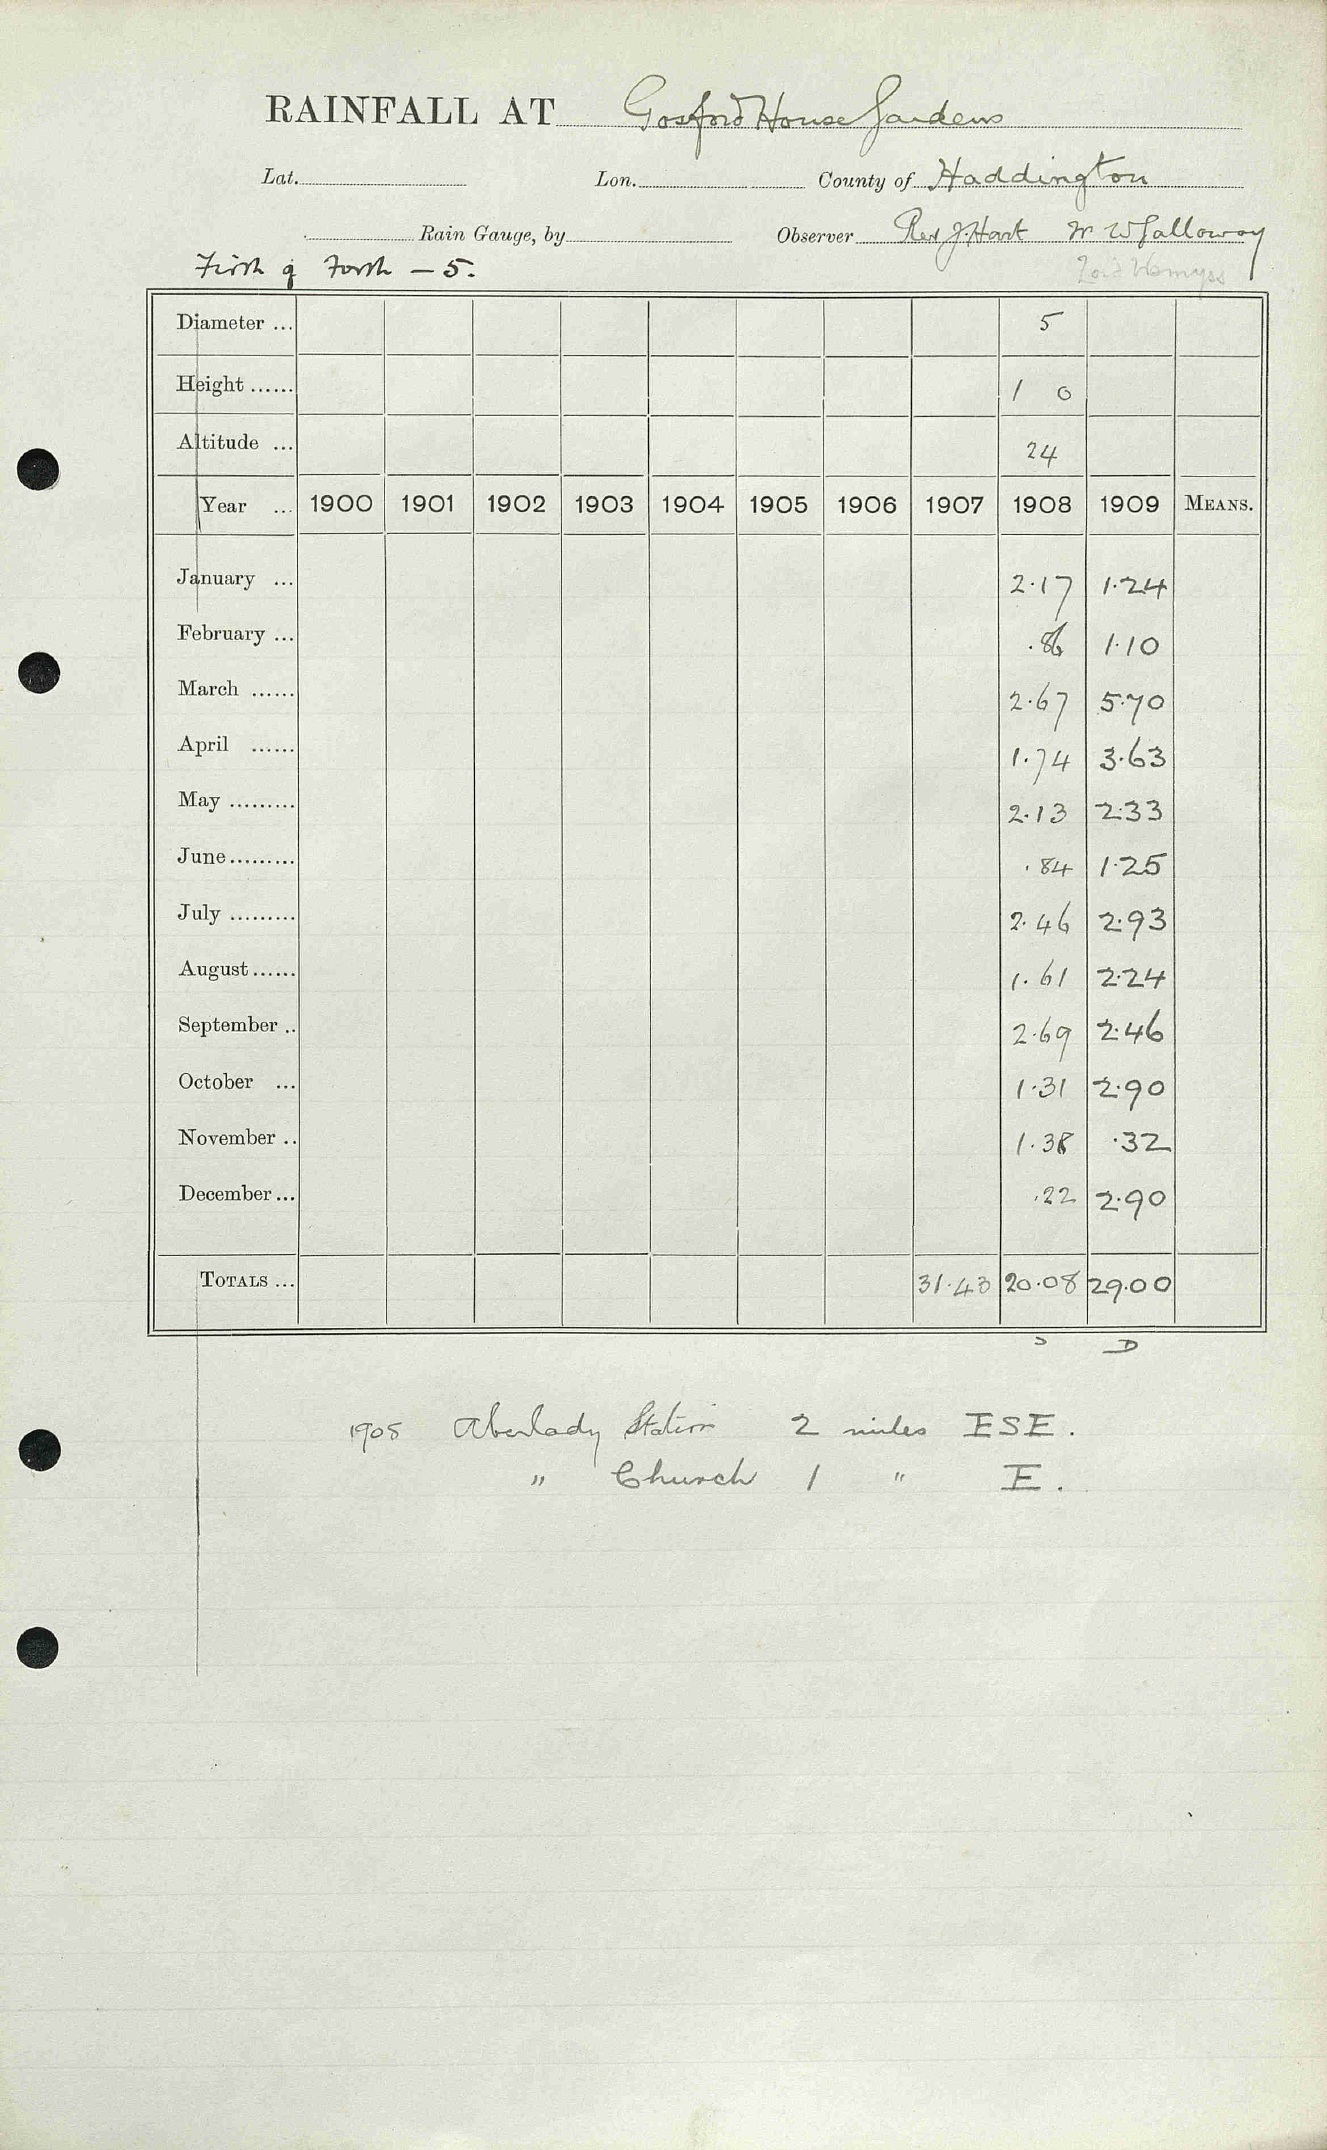 RAINFALL AT Gosford House Gardens
Lat. Lon. County of Haddington
Rain Gauge, by Observer Rev J. Hart Mr W Galloway
Firth of Forth — 5. Lord Wemyss
Diameter ... 5
Height ...... 1 0
Altitude ... 24
Year ... 1900 1901 1902 1903 1904 1905 1906 1907 1908 1909 MEANS.
January ... 2.17 1.24
February ... .86 1.10
March ...... 2.67 5.70
April ...... 1.74 3.63
May ......... 2.13 2.33
June ......... .84 1.25
July ......... 2.46 2.93
August ...... 1.61 2.24
September .. 2.69 2.46
October ... 1.31 2.90
November .. 1.38 .32
December ... .22 2.90
TOTALS ... 31.43 20.08 29.00
D
1908 Aberlady Station 2 miles ESE.
" Church 1 " E.